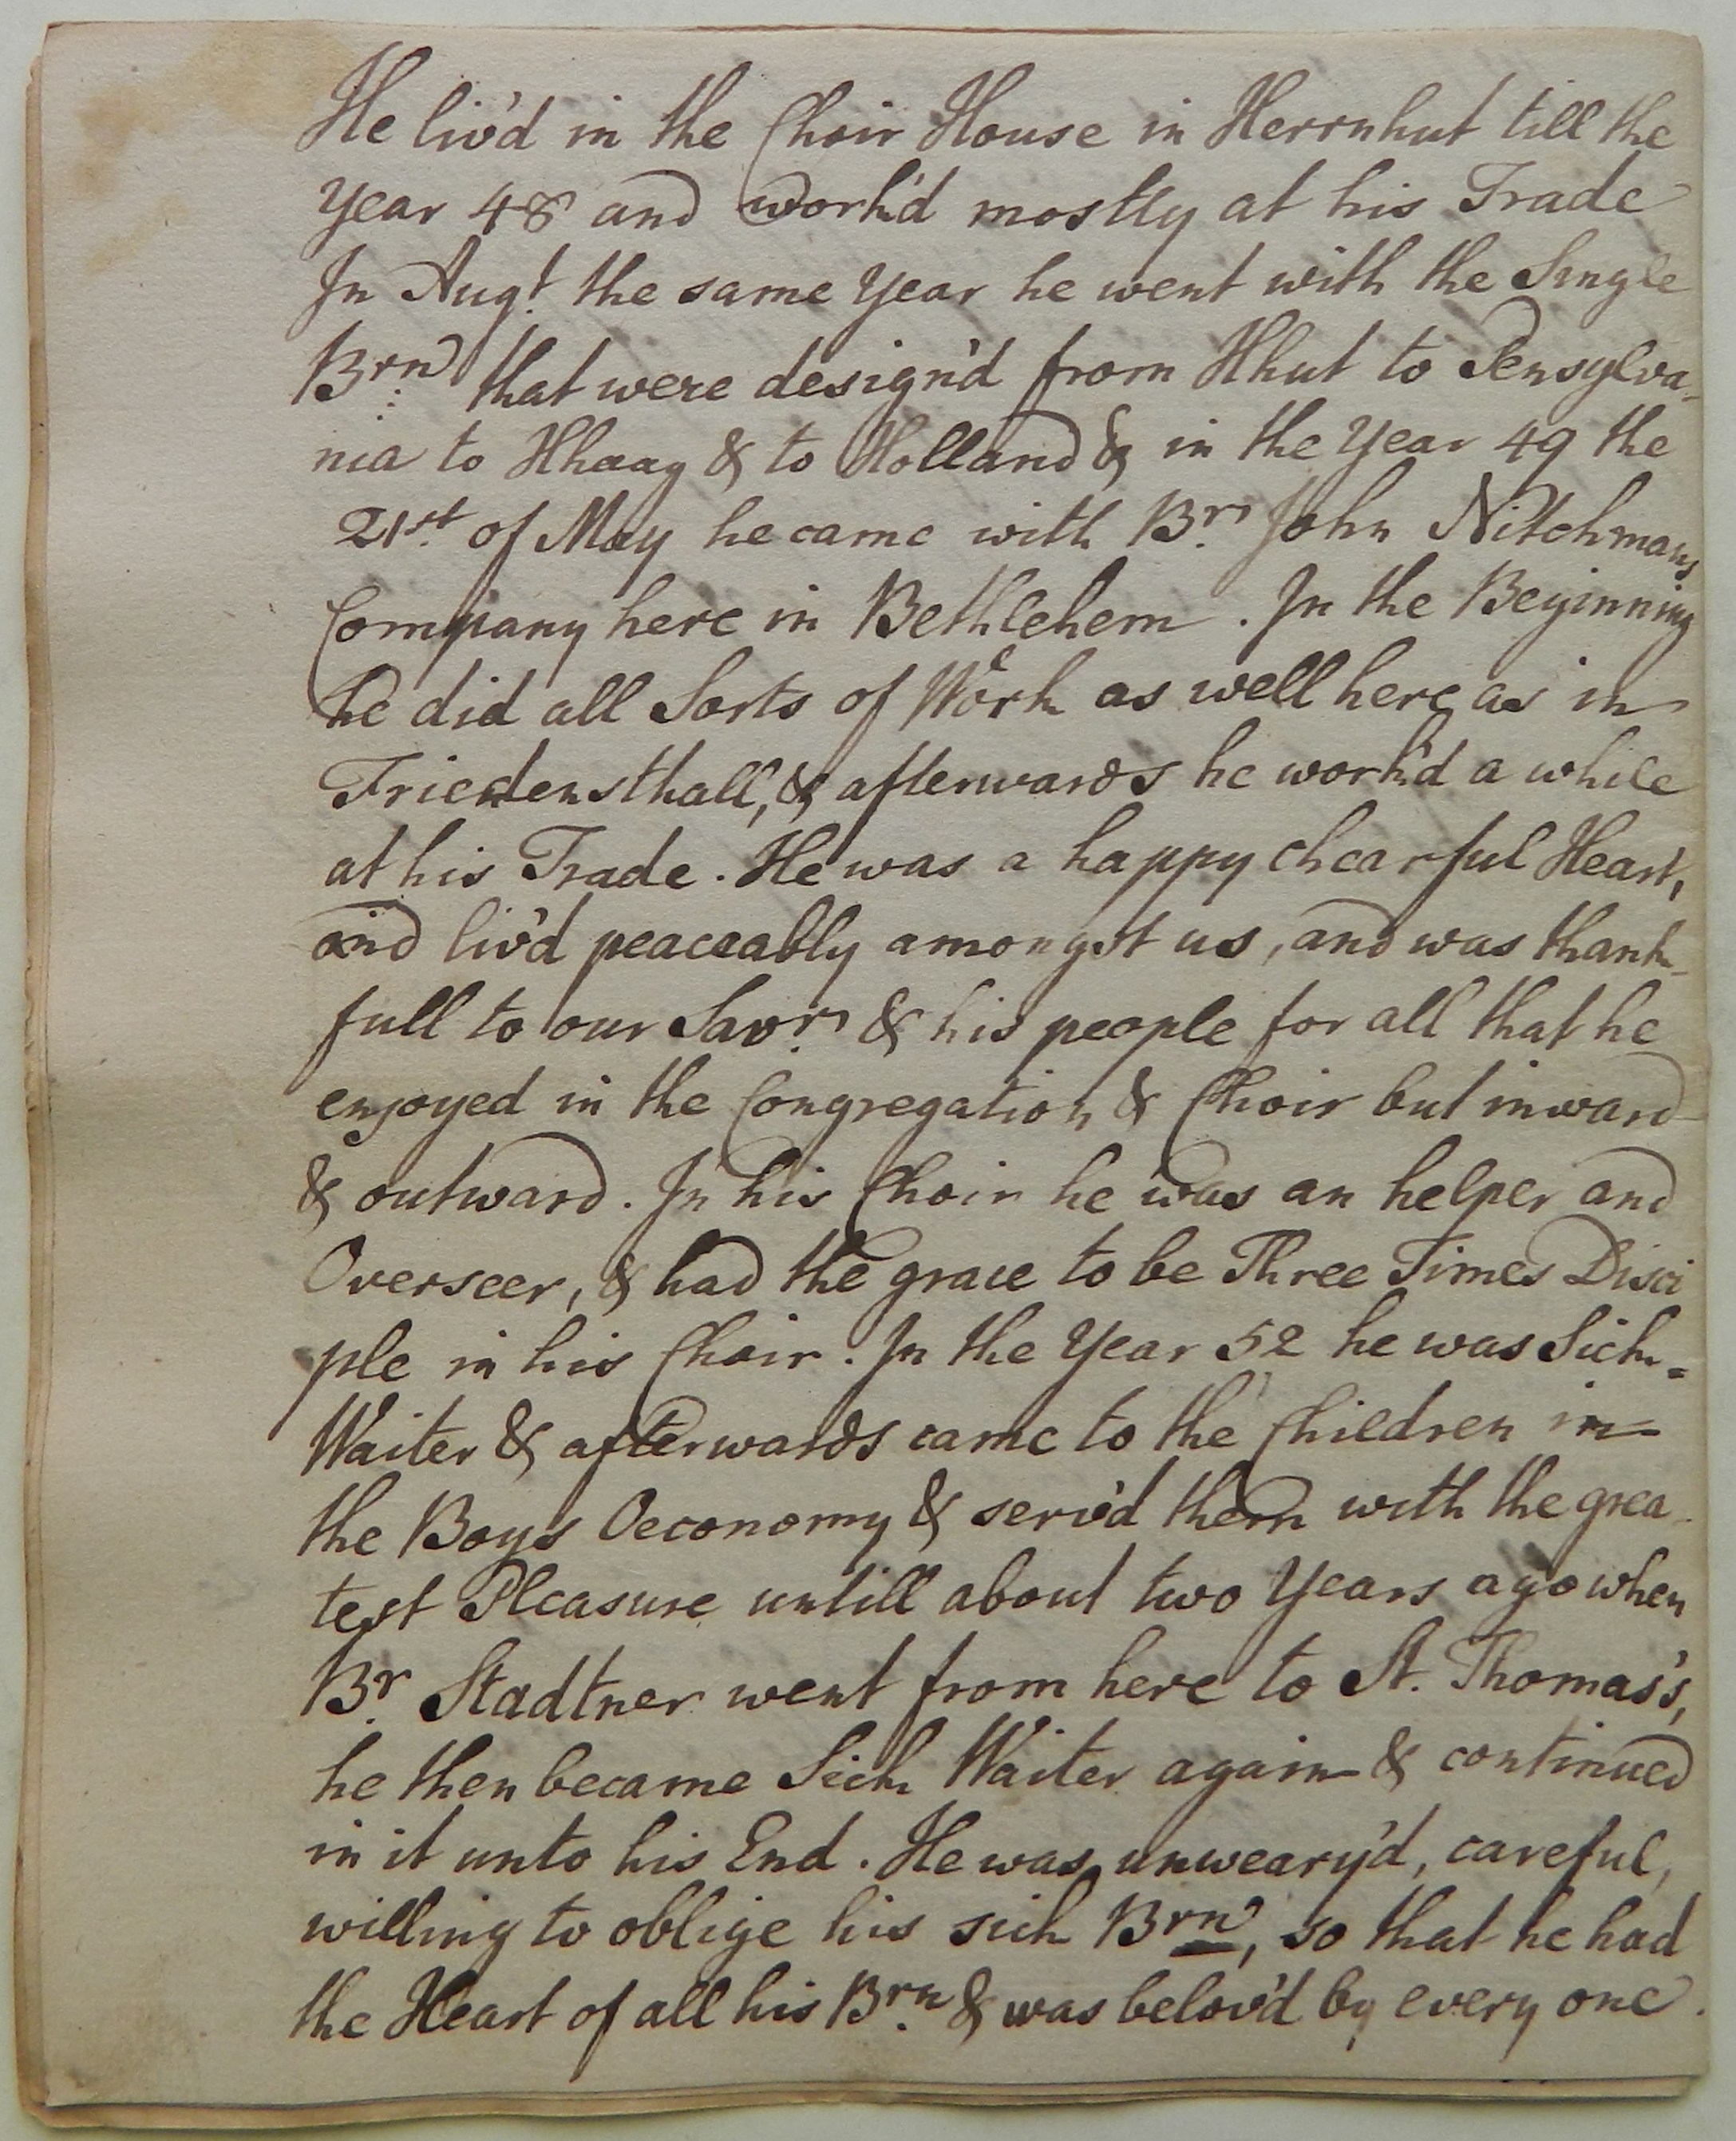 He liv'd in the Choir House in Herrnhut till the
Year 48 and work'd mostly at his Trade
In Augt. the same Year he went with the Single
Brn. that were design'd from Hhut to Pensylva-
nia to Hhaag & to Holland & in the Year 49 the
21st. of May he came with Br. John Nitchmans
Company here in Bethlehem. In the Beginning
he did all Sorts of Work as well here as in
Friedensthall, & afterwards he work'd a while
at his Trade. He was a happy chearful Heart,
and liv'd peaceably amongst us, and was thank-
full to our Savr. & his people for all that he
enjoyed in the Congregation & Choir but inward
& outward. In his Choir he was an helper and
Overseer, & had the grace to be Three Times Disci
ple in his Choir. In the Year 52 he was Sick=
Waiter & afterwards came to the Children in
the Boys Oeconomy & serv'd them with the grea-
test Pleasure untill about two Years ago when
Br. Stadtner went from here to St. Thomas's,
he then became Sick Waiter again & continued
in it unto his End. He was unweary'd, careful,
willing to oblige his sick Brn, so that he had
the Heart of all his Brn. & was belov'd by every one.